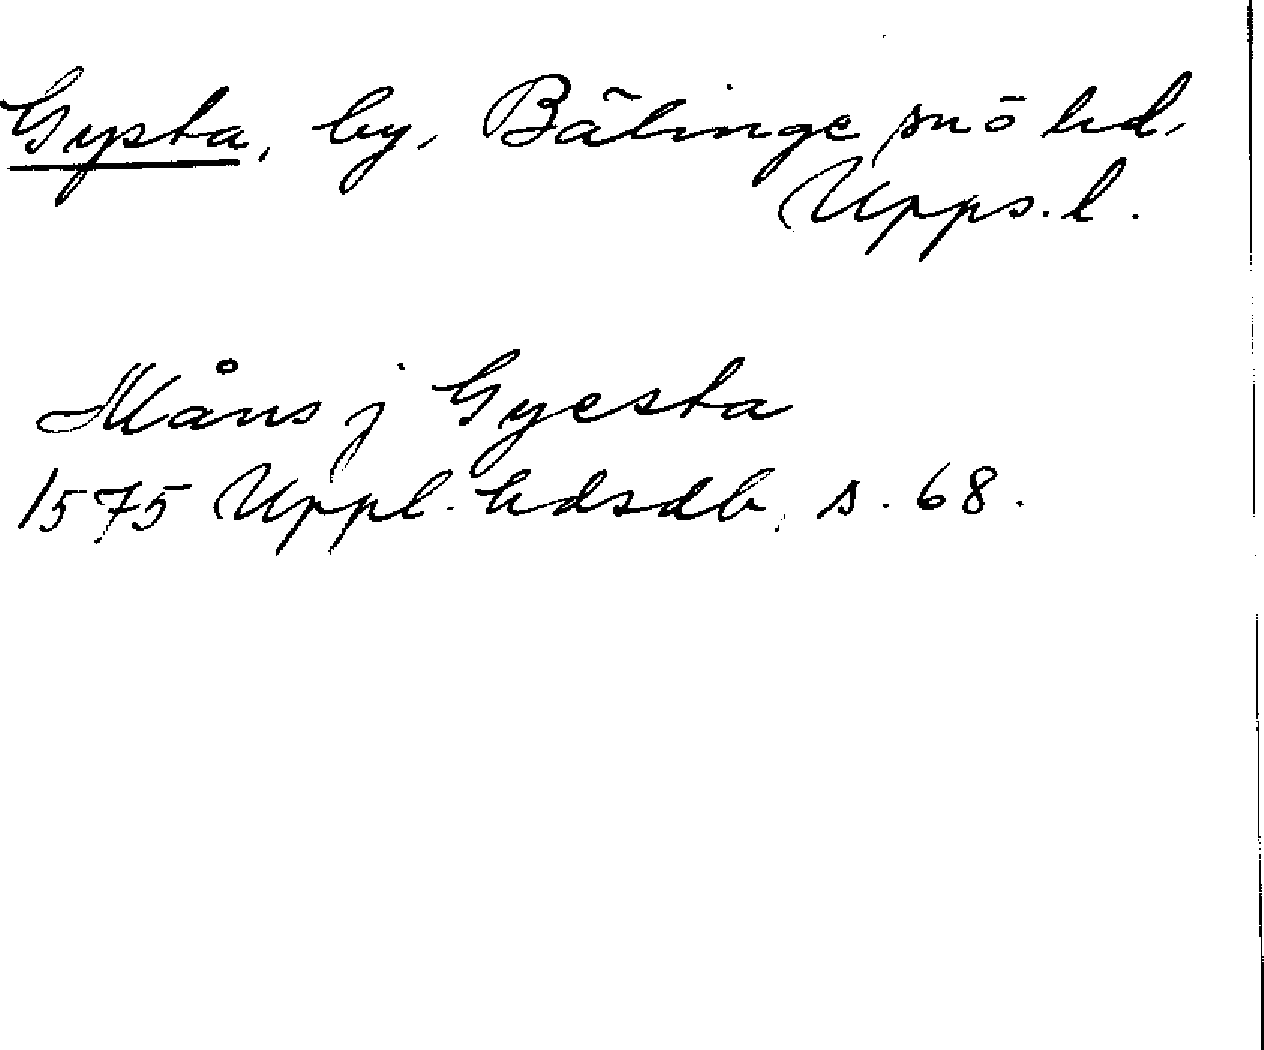 Gysta, by, Bälinge sn o hd,
Upps. l.
Måns j Gyesta
1575 Uppl. hdsdb, s. 68.